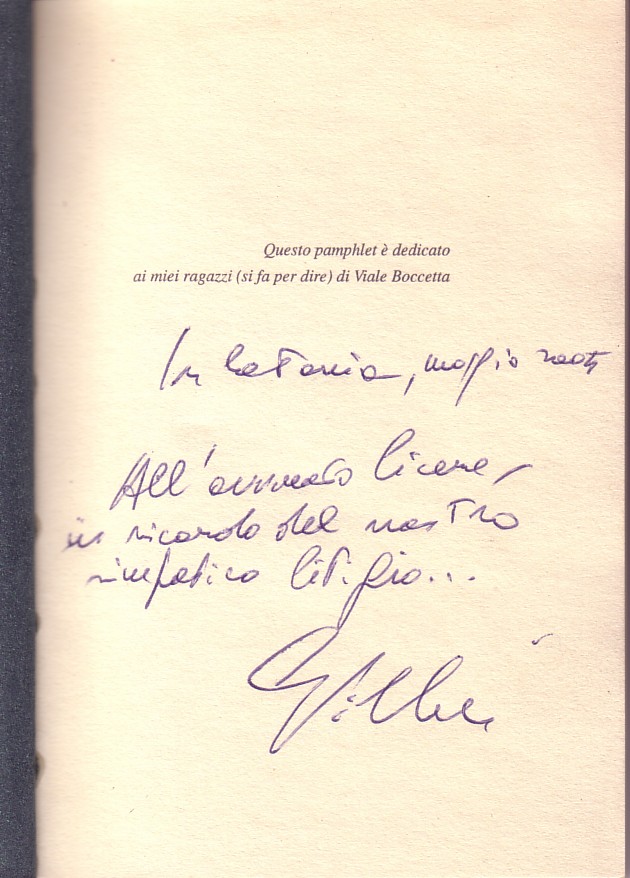 Questo pamphlet è dedicato
ai miei ragazzi (si fa per dire) di Viale Boccetta
In Catania, maggio
All'avvocato
in ricordo del nostro
simpatico litigio...